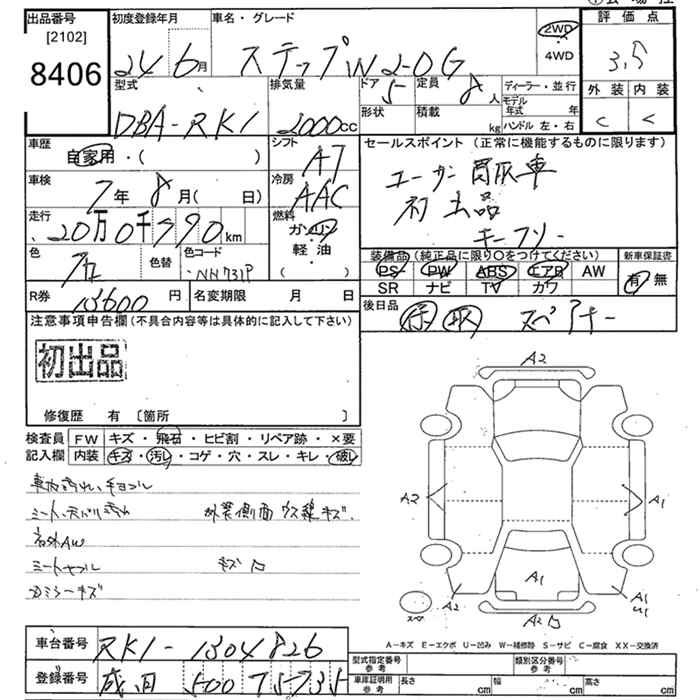 出品番号
[2102]
8406
初度登録年月
24 6月
車名・グレード
ステップW 2-0G
2WD
・4WD
評価点
3.5
外装 内装
C C
型式
DBA-RK1
排気量
2000cc
ドア 5
定員 8人
形状
積載 kg
ディーラー・並行
モデル年式 年
ハンドル 左・右
車歴
自家用・( )
シフト
AT
車検
7年 8月( 日)
冷房
AAC
走行
20万0千990km
燃料
ガソリン
軽・油
色
クロ
色替
色コード
NH731P
R券
13600円
名変期限 月 日
セールスポイント(正常に機能するものに限ります)
ユーザー買取車
初出品
キーフリー
装備品(純正品に限り○をつけてください)
PS PW ABS エアB AW
SR ナビ TV カワ
新車保証書
有 無
後日品
保 取 スペアキー
注意事項申告欄(不具合内容等は具体的に記入して下さい)
初出品
修復歴 有 〔箇所 〕
検査員
記入欄
FW キズ・飛石・ヒビ割・リペア跡・×要
内装 キズ・汚し・コゲ・穴・スレ・キレ・破し
外装側面 ウス線キズ
ミラーキズ
A2
A2
A1
A1
A2
A2
A1
U1
スペア
A-キズ E-エクボ U-凹み W-補修跡 S-サビ C-腐食 XX-交換済
車台番号
RK1-1304826
登録番号
成田 500 7 5-735
型式指定番号 参考
類別区分番号 参考
車庫証明用 参考
長さ cm
幅 cm
高さ cm